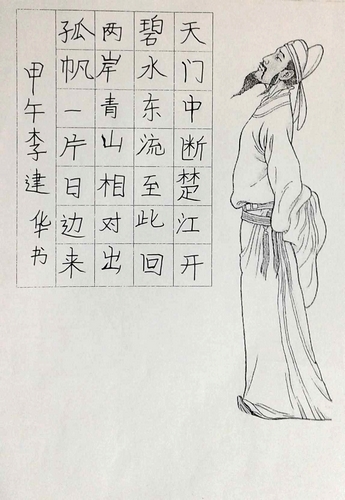 天门中断楚江开
碧水东流至此回
两岸青山相对出
孤帆一片日边来
甲午李建华书